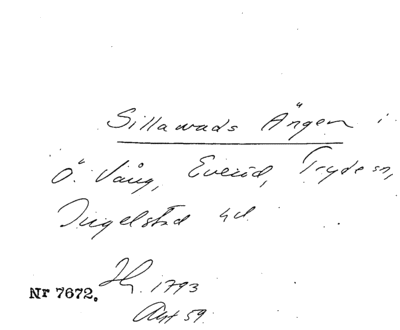 Sillawads Ängen i
Ö. Vång, Everöd, Tryde sn,
Ingelstad hd.
1793
Nr 7672.
Akt 59.